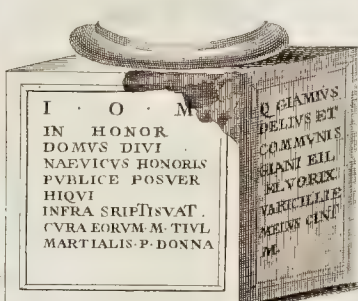 I · O · M
IN HONOR
DOMVS DIVI
NAEVICVS HONORIS
PVBLICE POSVER
HIQVI
INFRA SRIPTISVAT .
CVRA EORVM · M · TIVL
MARTIALIS · P · DONNA
Q GIAMIVS
DELIVS ET
COMMVNIS
GIANI EIL
VORIX
VARICILLIE
MELVS CINT
M.